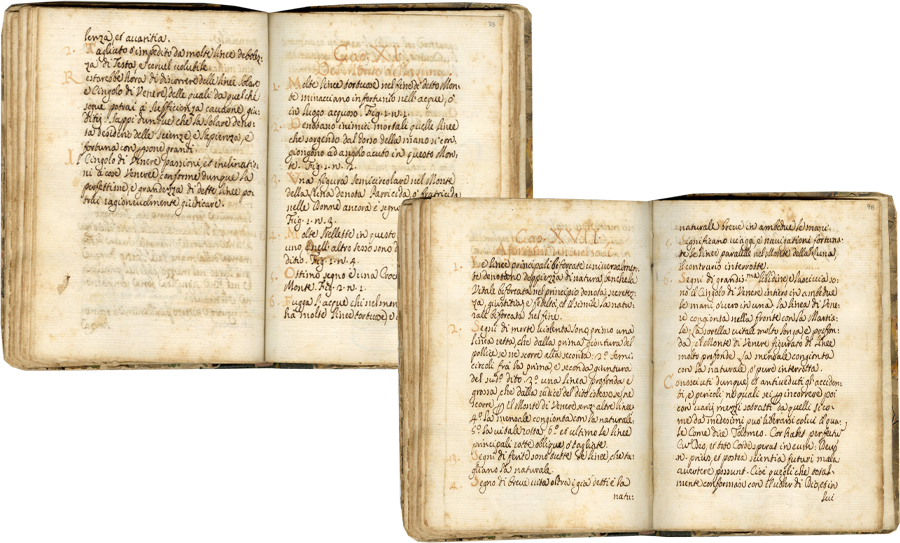 lenza, et avaritia.
2. Tagliato o' impedito da molte linee debolez-
za di Testa e cervel volubile.
Restarebbe hora di discorrere delle linee Solare
e Cingolo di Venere, delle quali da quel che
scrive potrai a' sufficienza cavarne giu-
ditij. Sappi dunque che la Solare deno-
ta desiderio delle Scienze, e Sapienza, e
fortuna con persone grandi.
Il Cingolo di Venere passioni, et inclinatio-
ni a' cose Veneree conforme dunque la
perfettione, e grandezza di dette linee po-
trai ragionevolmente giudicare.
Cap.
23
Cap. XI.
Del Monte della Luna.
1. Molte linee tortuose nel fine di ditto Mon-
te minacciano infortunio nell'acque, o'
in luogo acquoso. Fig. 1. n. 1.
2. Denotano inimici mortali quelle linee
che sorgendo dal dorso della mano si con-
giongono ad angolo acuto in questo Mon-
te. Fig. 1. n. 2.
3. Una figura semicircolare nel Monte
della Luna denota Parricida o' fratricida
nelle Donne ancora è segno
Fig. 1. n. 3.
Molte Stellette in questo
uno, e nell'altro sesso sono di
ditio. Fig. 1. n. 4.
5. Ottimo segno è una Croce
Monte. Fig. 1. n.
6. Fugga l'acque chi nel mon
ha molte linee tortuose, e
Cap. XVII.
1. Le linee principali biforcate universalmen-
te denotano doppiezza di natura, benche la
Vitale biforcata nel principio denota secretez-
za, giustitia, e fedeltà, et il simile la natu-
rale biforcata nel fine.
2. Segni di morte violenta sono primo una
linea retta, che dalla prima giontura del
pollice se ne scorre alla seconda. 2.º Semi-
circoli fra la prima, e seconda giuntura
del sud.º dito. 3.º una linea profonda e
grossa che dalla radice del dito istesso se ne
scorre p il Monte di Venere senz'altre linee.
4.º la mensale congionta con la naturale.
5.º la vitale rotta. 6.º et ultimo le linee
principali rotte oblique, o' tagliate.
3. Segni di ferite sono tutte le linee che ta-
gliano la naturale.
4. Segno di breve vita oltra i gia detti è la
natu:
naturale breve in ambedue le mani.
Significano viaggi, e navigationi fortuna-
te le linee parallele nel Monte della Luna,
il contrario interrotte.
Segni di grandiss.ma libidine, e lascivia so-
no il Cingolo di Venere intiero in ambedue
le mani overo in una la linea di Vene-
re congionta nella fronte con la Martia-
le: la sorella vitale molto longa, e profon-
da, et il Monte di Venere figurato di linee
molto profonde. La mensale congionta
con la naturale, o' pure interrotta.
Conosciuti dunque, et antiveduti gl'acciden-
ti, e pericoli ne quali sei p incorrere poi
con varij mezzi sottratti da quelli si co-
me da medesimi può liberarsi colui il qua-
le
Deo, et toto Corde
mala
Cioè quelli che total-
mente conformano con il voler di Dio, et in
lui